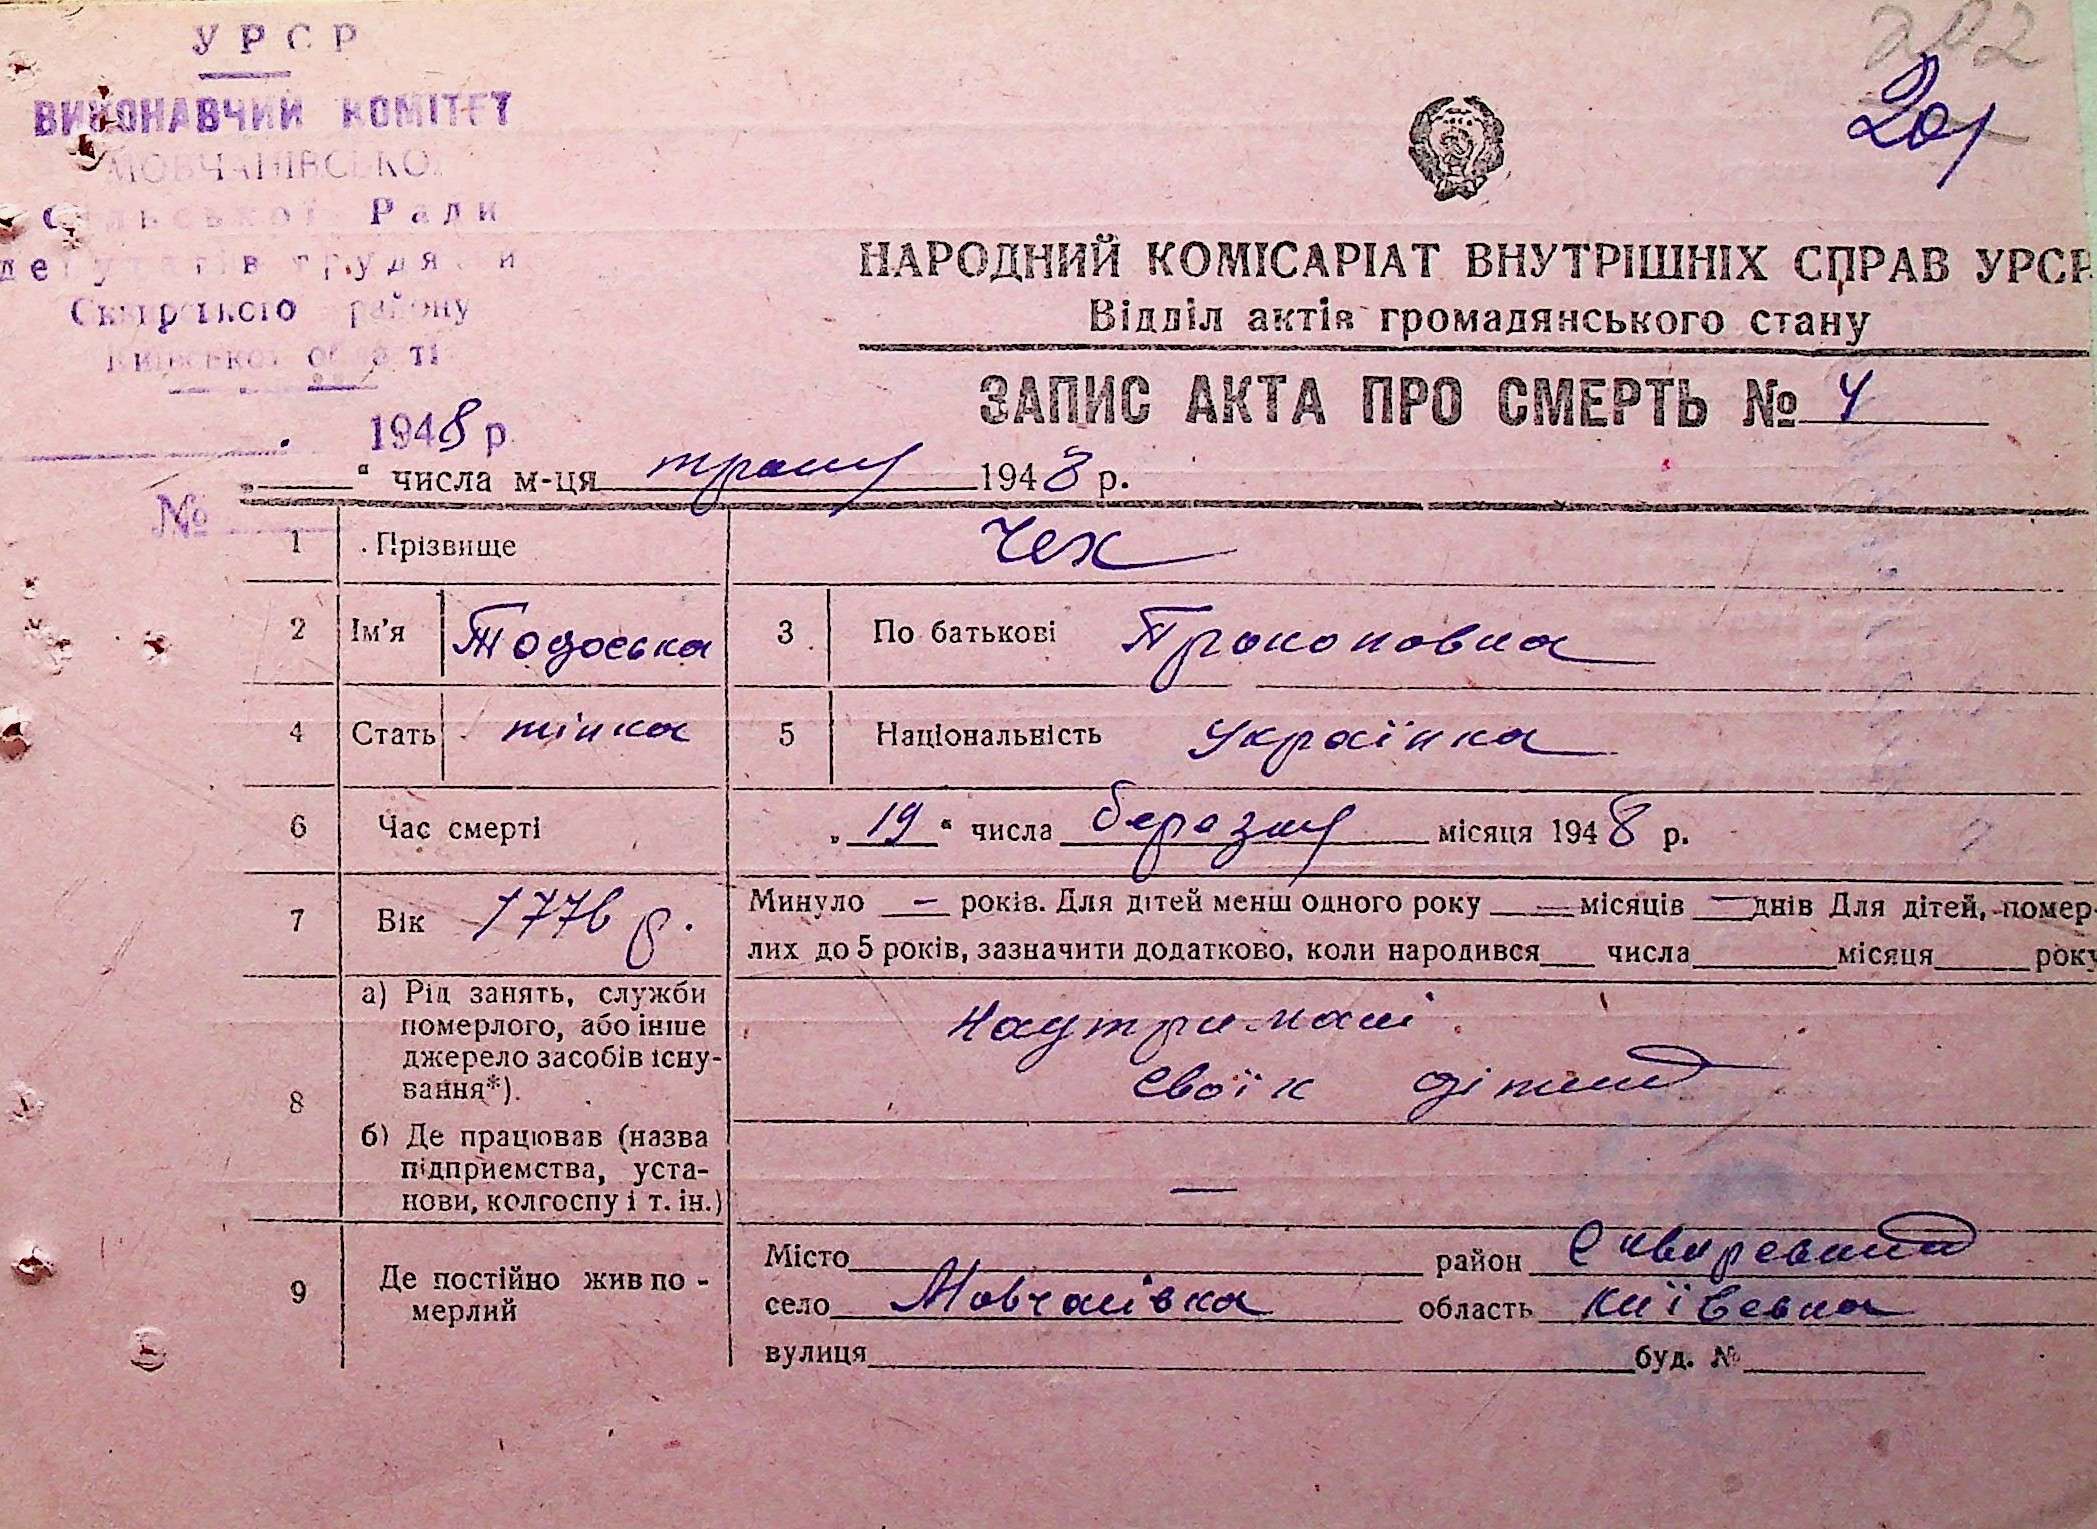 202
201
УРСР
ВИКОНАВЧИЙ КОМІТЕТ
МОВЧАНІВСЬКОЇ
Сільської Ради
депутатів трудящих
Сквирського району
Київської області
1948 р.
№
НАРОДНИЙ КОМІСАРІАТ ВНУТРІШНІХ СПРАВ УРСР
Відділ актів громадянського стану
ЗАПИС АКТА ПРО СМЕРТЬ № 4
„ “ числа м-ця 1948 р.
1 Прізвище Чех
2 Ім'я Тодоська 3 По батькові Прокоповна
4 Стать жінка 5 Національність Українка
6 Час смерті „19“ числа березня місяця 1948 р.
7 Вік 1776 р. Минуло — років. Для дітей менш одного року — місяців — днів Для дітей, помер-
лих до 5 років, зазначити додатково, коли народився числа місяця року
8 а) Рід занять, служби
померлого, або інше
джерело засобів існу-
вання*).
Наутримані
своїх дітей
б) Де працював (назва
підприємства, уста-
нови, колгоспу і т. ін.)
—
9 Де постійно жив по-
мерлий
Місто район Сквирський
село Мовчанівка область Київська
вулиця буд. №